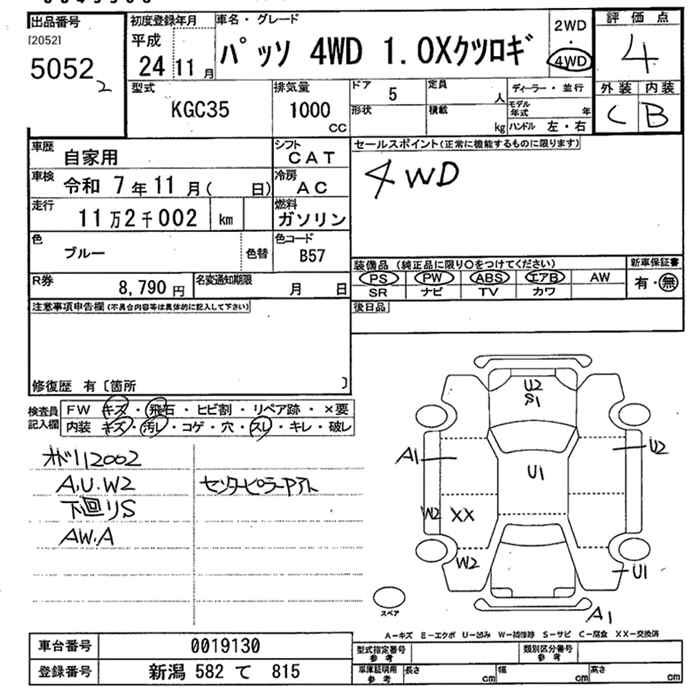 出品番号
[2052]
5052 2
初度登録年月
平成
24 11月
車名・グレード
パッソ 4WD 1.0Xクツロギ
2WD
・
4WD
評価点
4
外装 内装
C B
型式
KGC35
排気量
1000
CC
ドア
5
定員
人
形状
積載
kg
ディーラー・並行
モデル年式 年
ハンドル 左・右
車歴
自家用
シフト
CAT
車検
令和 7年11月( 日)
冷房
AC
走行
11万2千002 km
燃料
ガソリン
色
ブルー
色替
色コード
B57
R券
8,790円
名変通知期限
月 日
セールスポイント(正常に機能するものに限ります)
4WD
装備品(純正品に限り○をつけてください)
PS PW ABS エアB AW
SR ナビ TV カワ
新車保証書
有・無
後日品
注意事項申告欄(不具合内容等は具体的に記入して下さい)
修復歴 有〔箇所 〕
検査員記入欄
FW キズ・飛石・ヒビ割・リペア跡・×要
内装 キズ・汚レ・コゲ・穴・スレ・キレ・破レ
オドリ112002
A.U.W2
センターピラーアト
下回リS
AW.A
U2
S1
A1
U2
U1
W2
XX
W2
U1
A1
スペア
A-キズ E-エクボ U-凹み W-補修跡 S-サビ C-腐食 XX-交換済
車台番号
0019130
登録番号
新潟 582 て 815
型式指定番号
参考
類別区分番号
参考
車庫証明用
参考
長さ cm
幅 cm
高さ cm